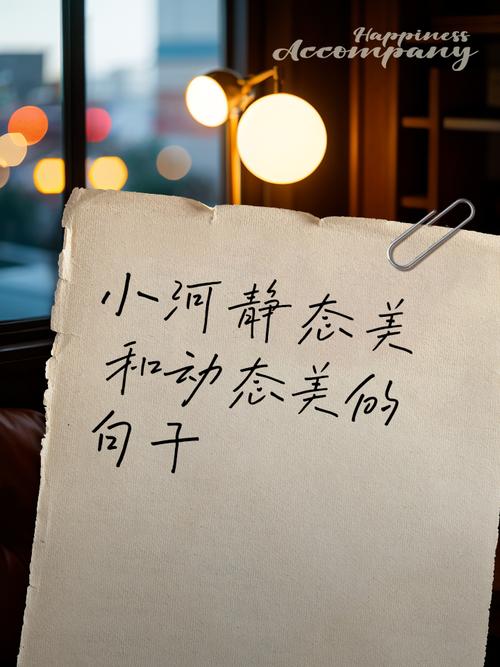 Happiness
Accompany
小河静态美
和动态美的
句子